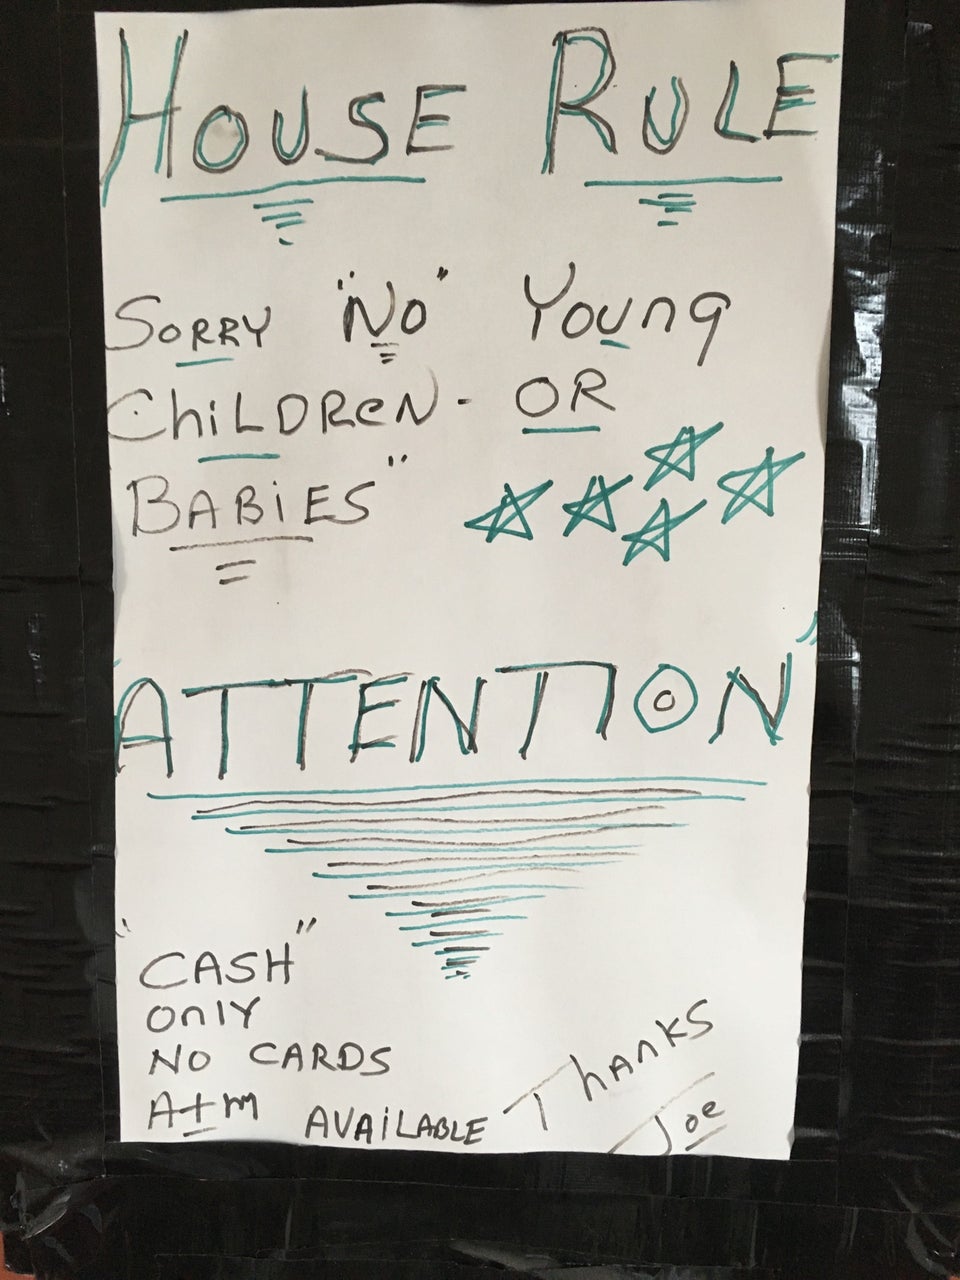 HOUSE RULE
SORRY "NO" YOUNG
ChiLDReN - OR
BABiES"
"ATTENTION"
"CASH"
ONLY
NO CARDS
Atm AVAiLABLE
ThANKS
Joe